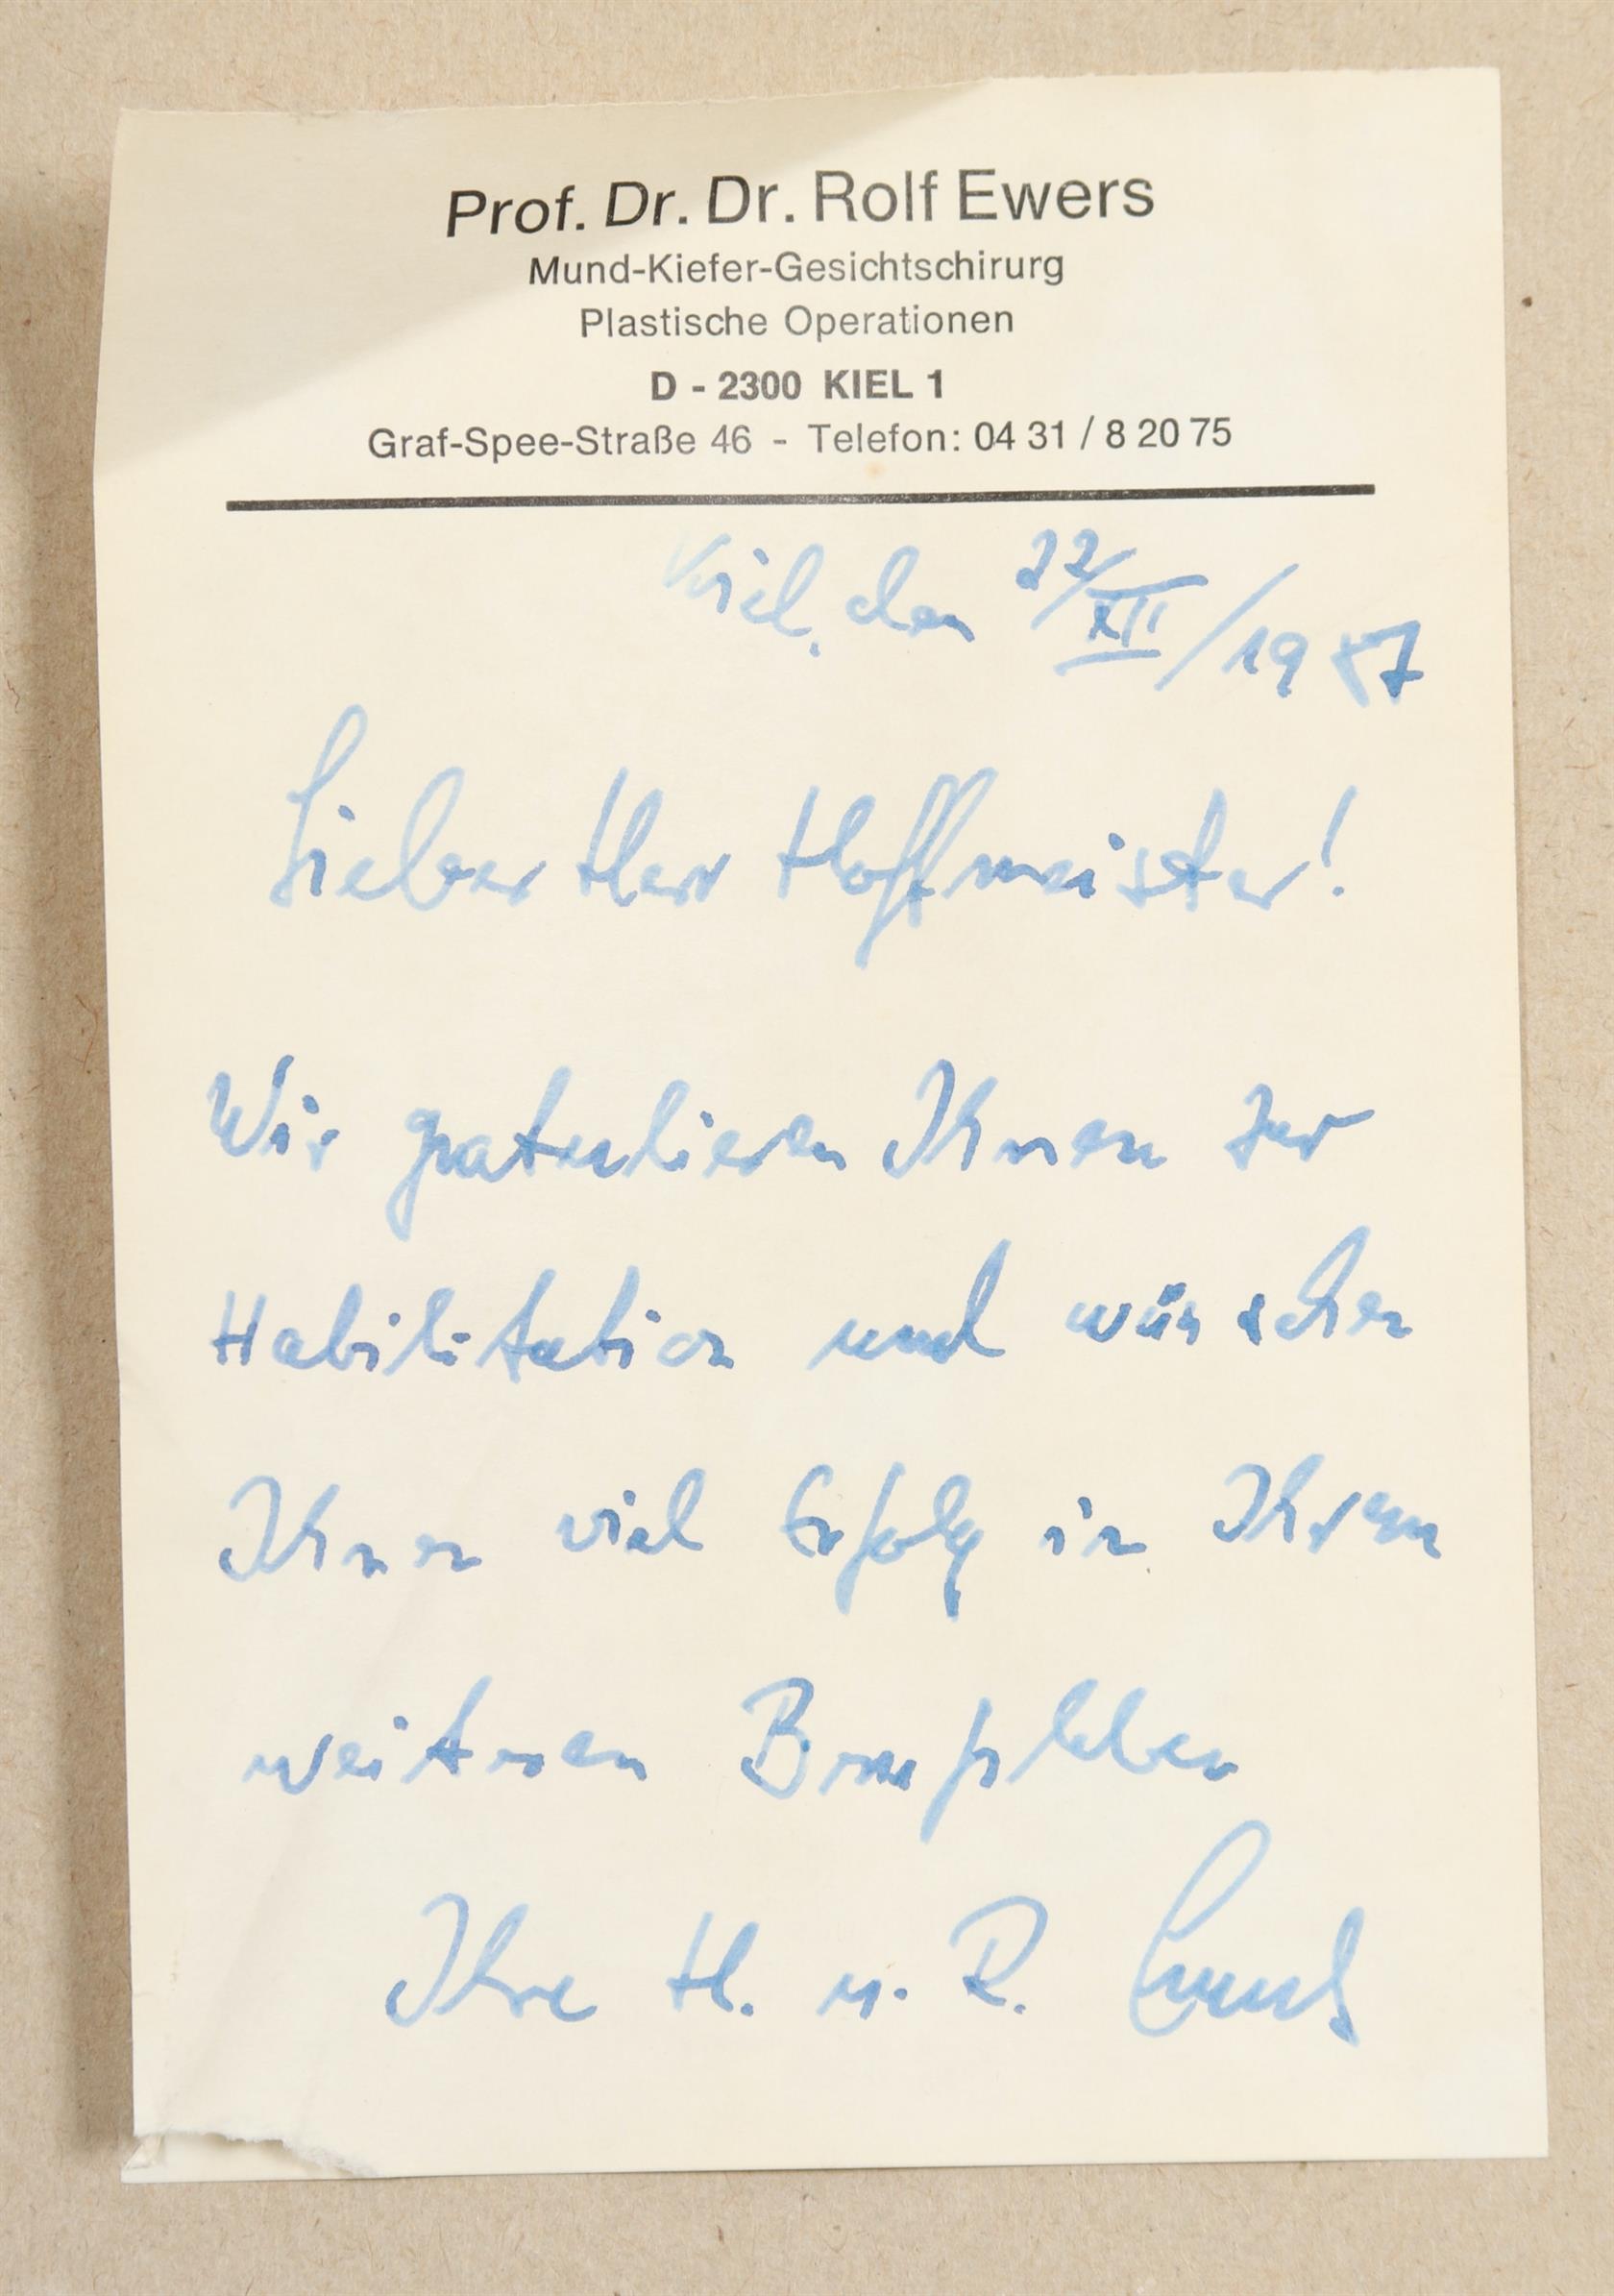 Prof. Dr. Dr. Rolf Ewers
Mund-Kiefer-Gesichtschirurg
Plastische Operationen
D - 2300 KIEL 1
Graf-Spee-Straße 46 - Telefon: 04 31 / 8 20 75
Kiel, den 22/XII/1987
Lieber Herr Hoffmeister!
Wir gratulieren Ihnen zur
Habilitation und wünschen
Ihnen viel Erfolg in Ihrem
weiteren Berufsleben
Ihre H. u. R. Ewers